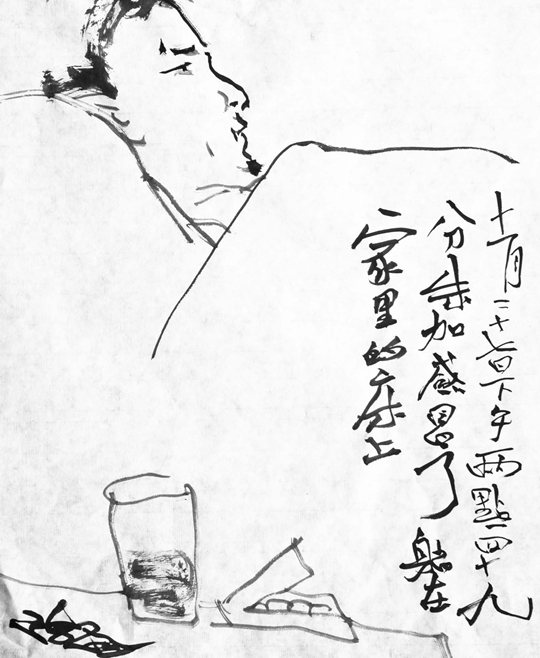 十一月二十七日下午兩點四十九
分朱加感冒了躺在
家里的床上